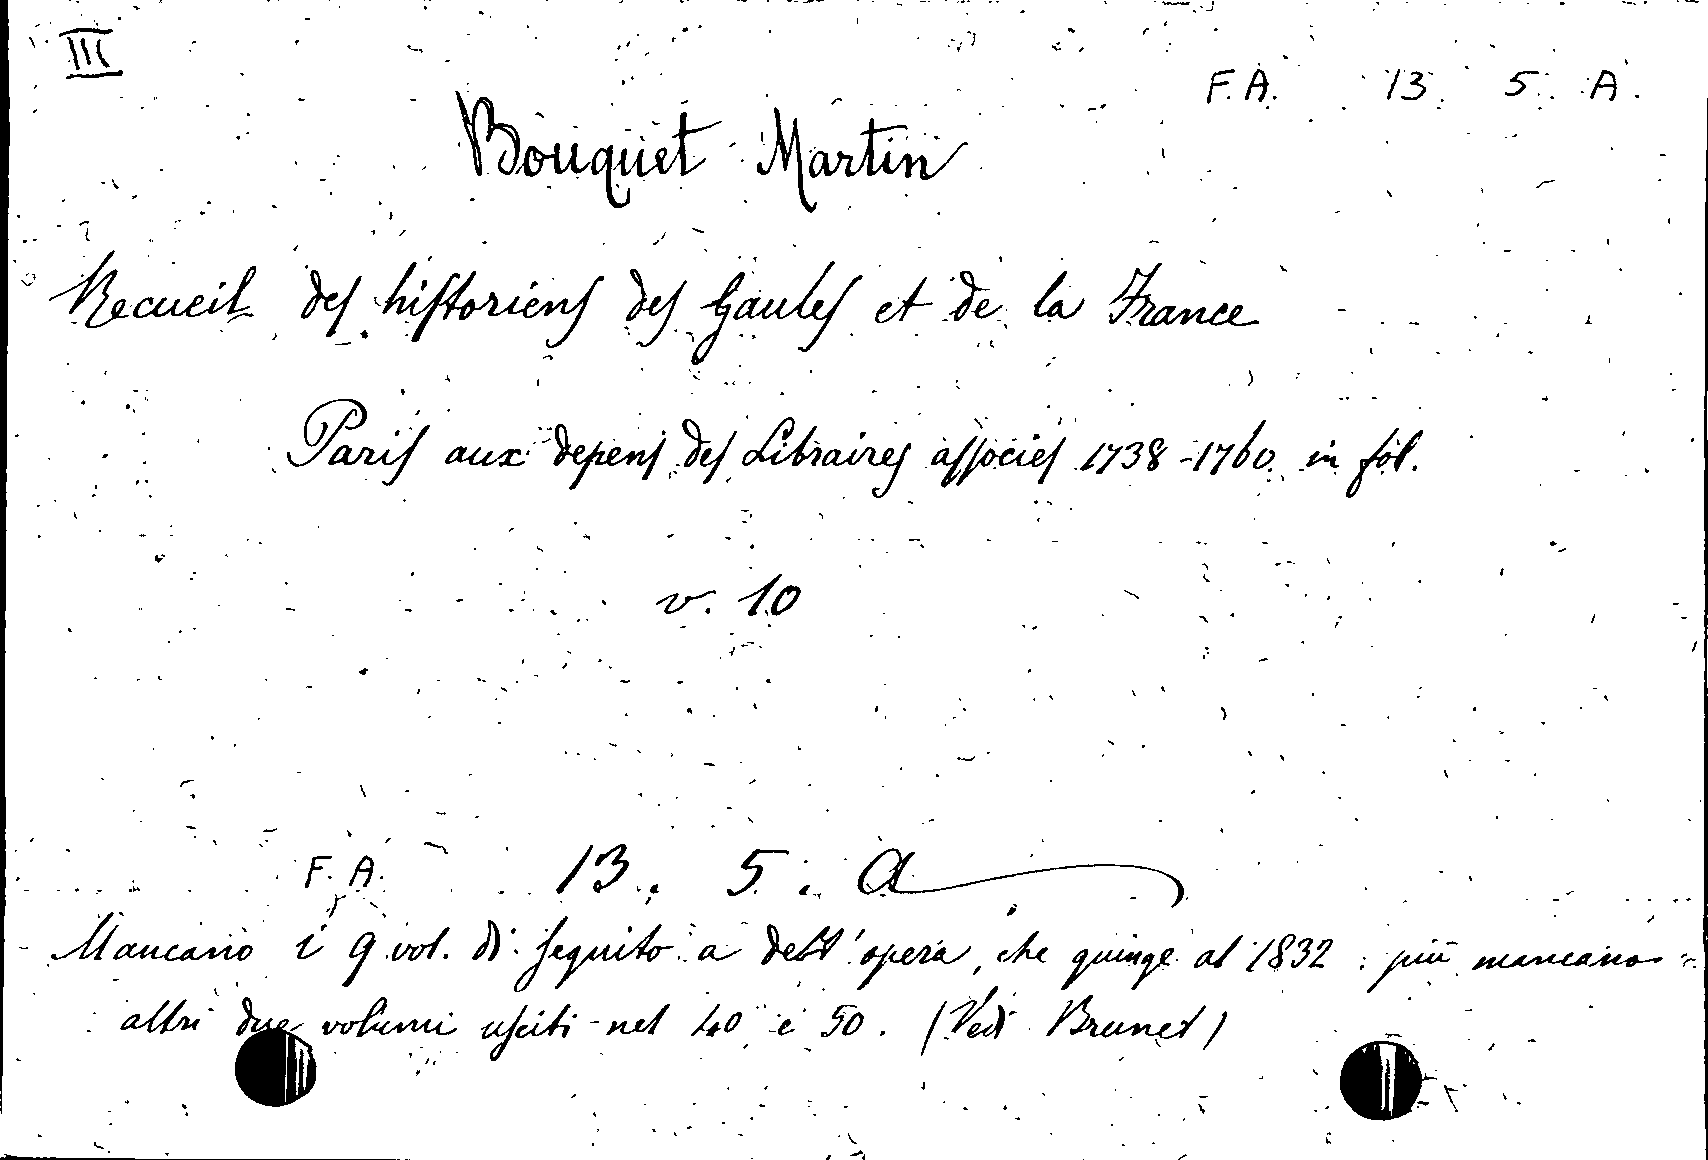 III
F. A. 13. 5. A.
Bouquet Martin
Recueil des historiens des Gaules et de la France
Paris aux depens des Libraires associes 1738-1760 in fol.
v. 10
F. A. 13. 5. A
Mancano i 9 vol. di seguito a dett'opera, che giunge al 1832. più mancano
altri due volumi usciti nel 40 e 50. (Vedi Brunet)